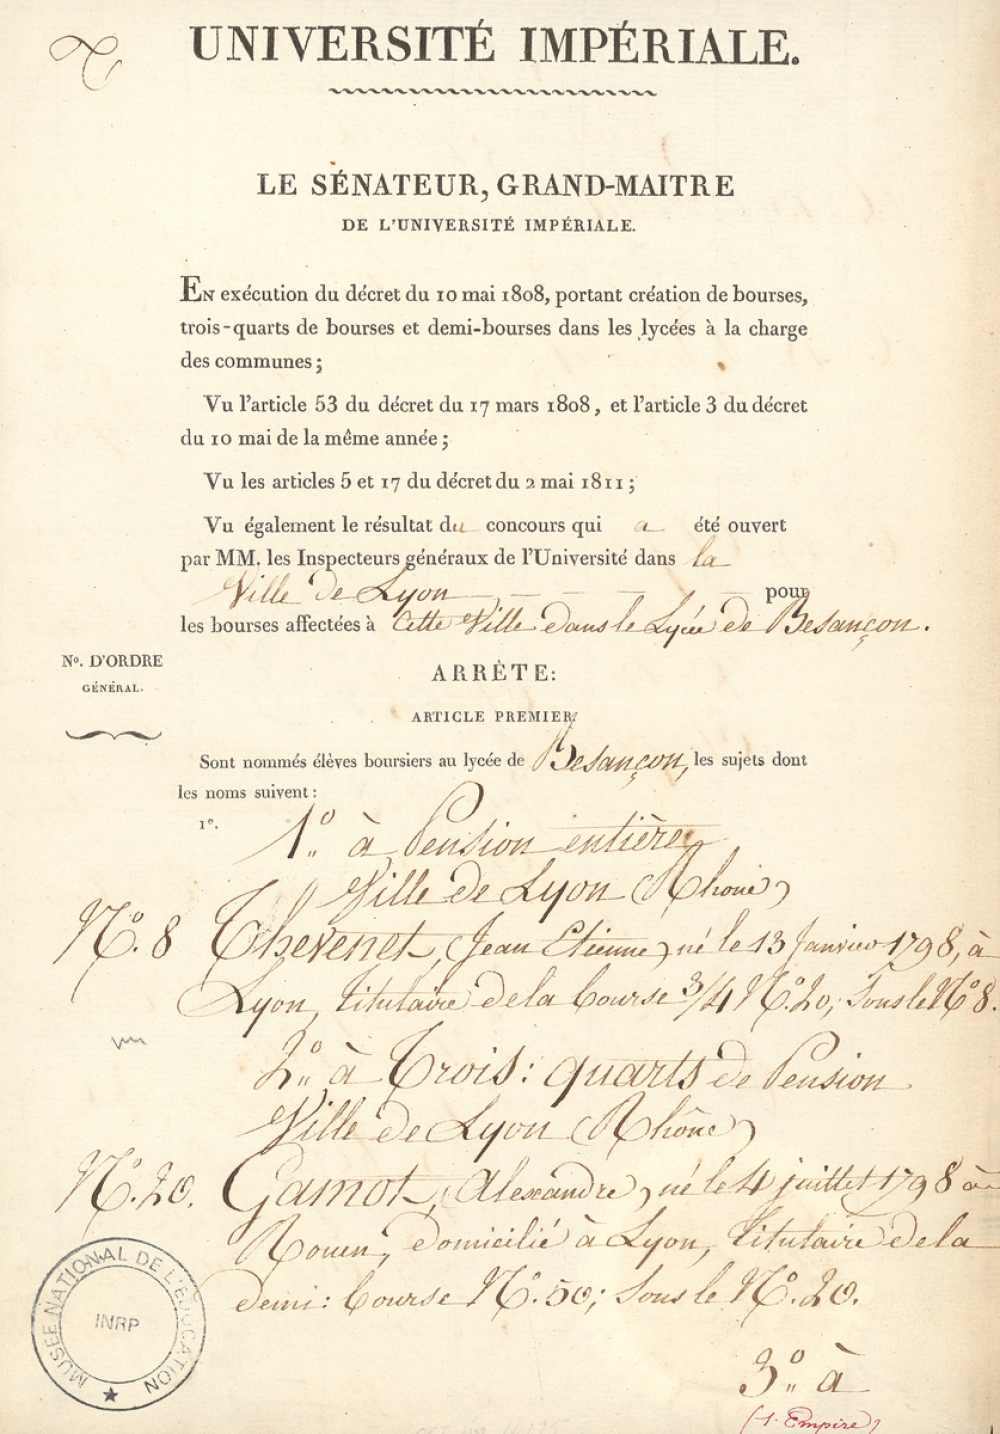 UNIVERSITÉ IMPÉRIALE.
LE SÉNATEUR, GRAND-MAITRE
DE L'UNIVERSITÉ IMPÉRIALE.
EN exécution du décret du 10 mai 1808, portant création de bourses,
trois-quarts de bourses et demi-bourses dans les lycées à la charge
des communes;
Vu l'article 53 du décret du 17 mars 1808, et l'article 3 du décret
du 10 mai de la même année;
Vu les articles 5 et 17 du décret du 2 mai 1811;
Vu également le résultat du concours qui a été ouvert
par MM. les Inspecteurs généraux de l'Université dans la
Ville de Lyon pour
les bourses affectées à Cette Ville dans le Lycée de Besançon.
No. D'ORDRE
GÉNÉRAL.
ARRÊTE:
ARTICLE PREMIER.
Sont nommés élèves boursiers au lycée de Besançon, les sujets dont
les noms suivent:
1o.
1o. à Pension entière
Ville de Lyon (Rhone)
No. 8 Thevenet, (Jean Etienne) né le 13 Janvier 1798, à
Lyon, titulaire de la bourse 3/4 No. 20; sous le No 8.
2o. à Trois: quarts de Pension
Ville de Lyon (Rhône)
No. 20. Gamot, (Alexandre) né le 4 juillet 1798 à
Rouen, domicilié à Lyon, titulaire de la
demi: bourse No. 50; sous le No. 20.
MUSÉE NATIONAL DE L'ÉDUCATION
INRP
3o. à
(1. Empire)